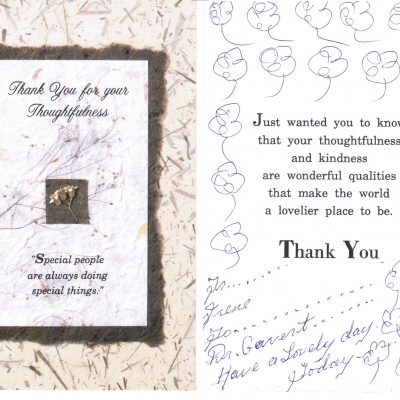 Thank You for your
Thoughtfulness
"Special people
are always doing
special things."
Just wanted you to know
that your thoughtfulness
and kindness
are wonderful qualities
that make the world
a lovelier place to be.
Thank You
Fr........
Irene
To...............
Dr. Gavert......
Have a Lovely day.
Today